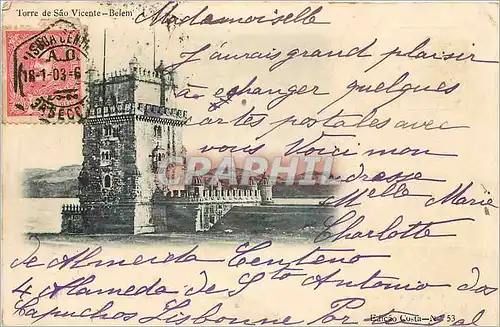 Torre de São Vicente-Belem
Mademoiselle
LISBOA CENTRAL
A.D.
18-1-03-6
J'aurais grand plaisir
à echanger quelques
cartes postales avec
vous Voici mon
adresse
Melle Marie
Charlotte
de Almeida Centeno
4 Alameda de Sto Antonio dos
Capuchos Lisbonne Portugal
Edição Costa-No 53
CPARAMA.COM